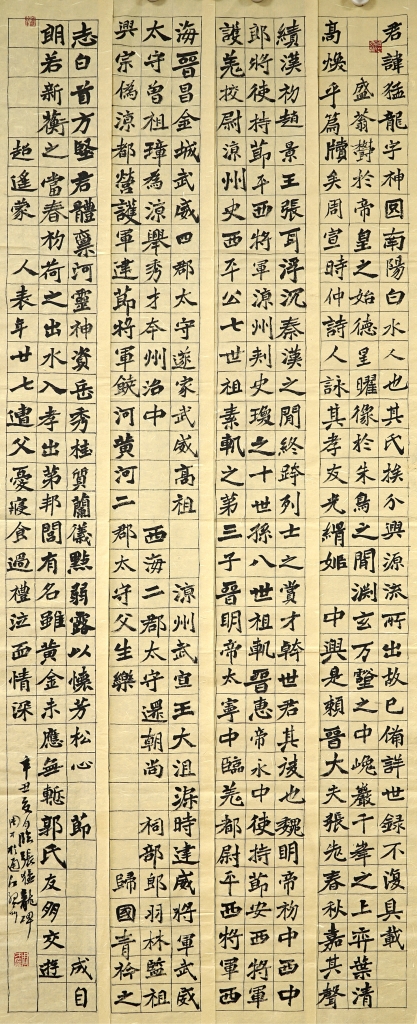 君諱猛龍字神囧南陽白水人也其氏族分興源流所出故已備詳世録不復具載
盛蓊欝於帝皇之始德星曜像於朱鳥之間淵玄万壑之中巉巖千峯之上弈葉清
高煥乎篇牘矣周宣時仲詩人詠其孝友光緝姬 中興是賴晉大夫張老春秋嘉其聲
績漢初趙景王張耳浮沉秦漢之間終跨列士之賞才幹世君其後也魏明帝初中西中
郎將使持節平西將軍涼州刾史瑍之十世孫八世祖軌晉惠帝永中使持節安西將軍
護羌校尉涼州史西平公七世祖素軌之第三子晉明帝太寧中臨羌都尉平西將軍西
海晉昌金城武威四郡太守遂家武威高祖 涼州武宣王大沮渠時建威將軍武威
太守曾祖璋為涼舉秀才本州治中 西海二郡太守還朝尚 祠部郎羽林監祖
興宗偽涼都營護軍建節將軍饒河黄河二郡太守父生樂 歸國青衿之
志白首方堅君體稟河靈神資岳秀桂質蘭儀點弱露以懷芳松心 節 成自
朗若新蘅之當春初荷之出水入孝出第邦閭有名雖黄金未應無慙郭氏友朋交遊
超遙蒙 人表年廿七遭父憂寢食過禮泣血情深
辛丑夏月臨張猛龍碑